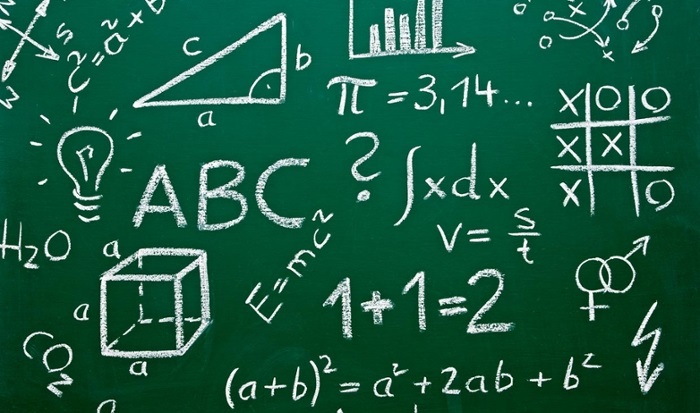 c² = a² + b
S
c
b
a
π = 3,14...
X O O
X X
X O
ABC
?
∫xdx
v = s/t
H₂O
a
a
a
E = mc²
1+1=2
CO₂
(a+b)² = a² + 2ab + b²